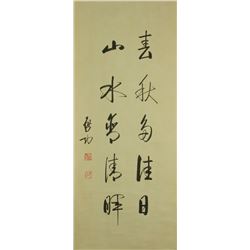 春秋多佳日
山水有清暉
啓功